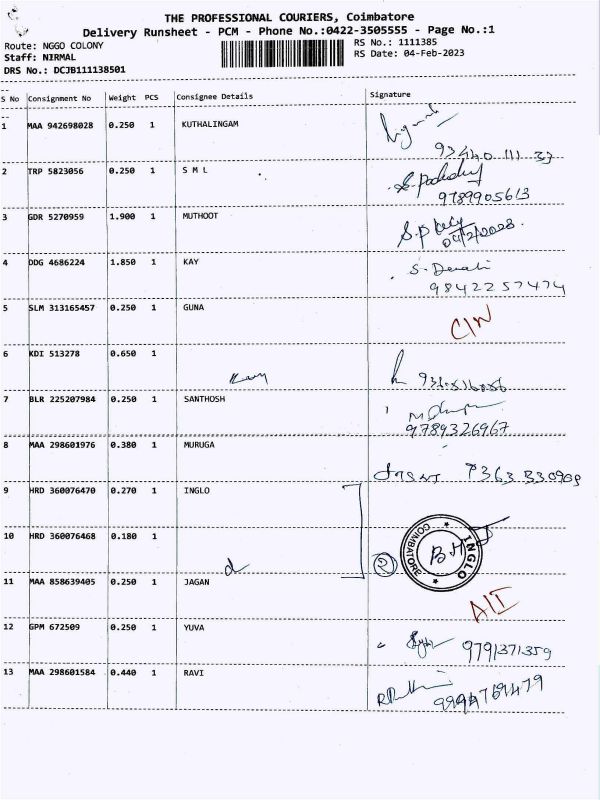 THE PROFESSIONAL COURIERS, Coimbatore
Delivery Runsheet - PCM - Phone No.:0422-3505555 - Page No.:1
Route: NGGO COLONY
RS No.: 1111385
Staff: NIRMAL
RS Date: 04-Feb-2023
DRS No.: DCJB111138501
S No Consignment No Weight PCS Consignee Details Signature
1 MAA 942698028 0.250 1 KUTHALINGAM
2 TRP 5823056 0.250 1 S M L
9789905613
3 GDR 5270959 1.900 1 MUTHOOT
04/2/2023
4 DDG 4686224 1.850 1 KAY
9842257474
5 SLM 313165457 0.250 1 GUNA
CIN
6 KDI 513278 0.650 1
7 BLR 225207984 0.250 1 SANTHOSH
9789326967
8 MAA 298601976 0.380 1 MURUGA
9 HRD 360076470 0.270 1 INGLO
10 HRD 360076468 0.180 1
INGLO
COIMBATORE
11 MAA 858639405 0.250 1 JAGAN
12 GPM 672509 0.250 1 YUVA
9791371359
13 MAA 298601584 0.440 1 RAVI